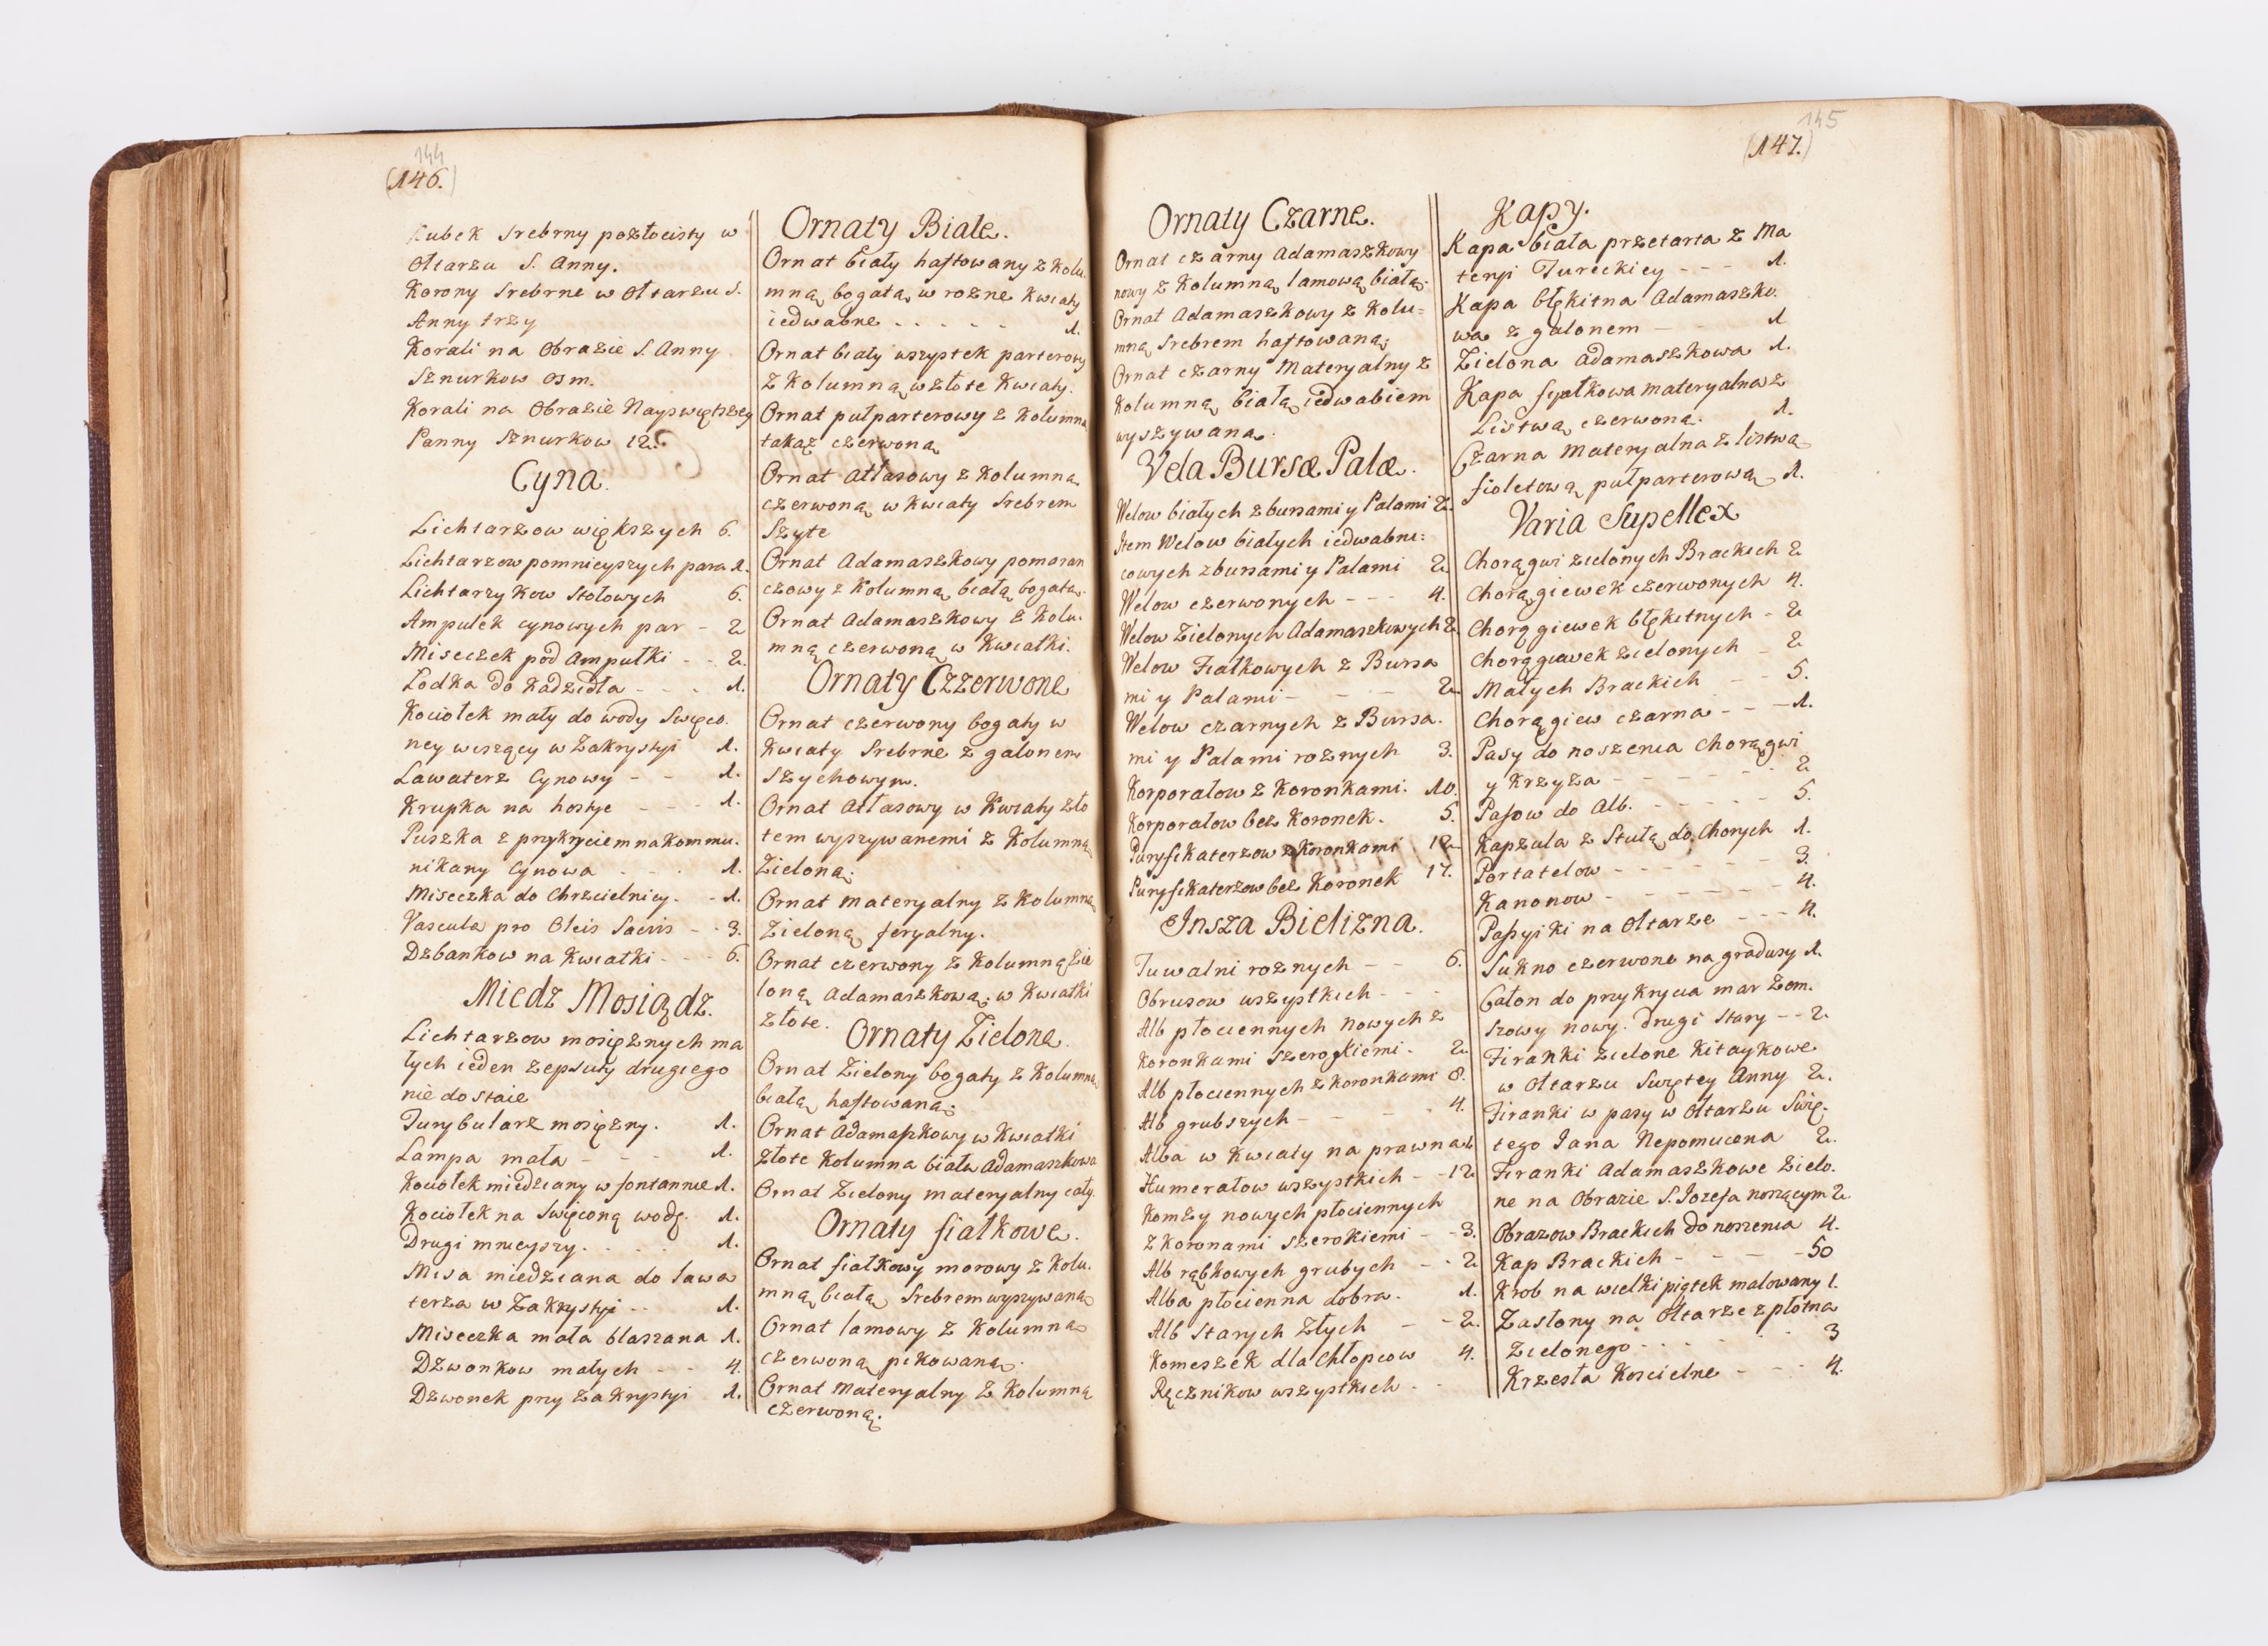 144
(146.)
Kubek Srebrny pozłocisty w
Ołtarzu S. Anny.
Korony Srebrne w Ołtarzu S.
Anny trzy
Korali na Obrazie S. Anny
Sznurkow osm.
Korali na Obrazie Nayswiętszey
Panny Sznurkow 12.
Cyna.
Lichtarzow większych 6.
Lichtarzow pomnieyszych para 1.
Lichtarzykow Stołowych 6.
Ampułek cynowych par - 2
Miseczek pod Ampułki - - 2.
Lodka do Kadzidła - - - 1.
Kociołek mały do wody Swięco.
ney wiszący w Zakrystyi 1.
Lawaterz Cynowy - - 1.
Krupka na hostye - - - 1.
Puszka z przykryciem na kommu.
nikany Cynowa - - - 1.
Miseczka do Chrzcielnicy. - 1.
Vascula pro Oleis Sacris - - 3.
Dzbankow na Kwiatki - - - 6.
Miedz Mosiądz.
Lichtarzow mosiężnych ma
łych ieden zepsuty drugiego
nie dostaie
Turybularz mosiężny. 1.
Lampa mała - - - 1.
Kociołek miedziany w fontannie 1.
Kociołek na Swięconą wodę. 1.
Drugi mnieyszy. . . . . 1.
Misa miedziana do lawa
terza w Zakrystyi - - 1.
Miseczka mała blaszana 1.
Dzwonkow małych - - - 4.
Dzwonek przy Zakrystyi 1.
Ornaty Białe.
Ornat biały haftowany z Kolu.
mną bogatą w rozne Kwiaty
iedwabne . . . . . 1.
Ornat biały wszystek parterowy
z Kolumną w złote Kwiaty.
Ornat pułparterowy z Kolumną
takąż czerwoną
Ornat Atłasowy z Kolumną
czerwoną w Kwiaty Srebrem
Szyte
Ornat Adamaszkowy pomaran
czowy z Kolumną białą bogatą.
Ornat Adamaszkowy z Kolu.
mną czerwoną w Kwiatki.
Ornaty Czzerwone
Ornat czerwony bogaty w
Kwiaty Srebrne z galonem
szychowym.
Ornat Atłasowy w Kwiaty zło
tem wyszywanemi z Kolumną
Zieloną.
Ornat materyalny z Kolumną
Zieloną feryalny.
Ornat czerwony z Kolumną zie
loną Adamaszkową w Kwiatki
złote.
Ornaty Zielone.
Ornat Zielony bogaty z Kolumną
białą haftowaną.
Ornat Adamaszkowy w Kwiatki
złote Kolumna biała Adamaszkowa
Ornat Zielony materyalny cały.
Ornaty fiałkowe.
Ornat fiałkowy morowy z Kolu.
mną białą Srebrem wyszywaną
Ornat lamowy z Kolumną
czerwoną pikowaną.
Ornat Materyalny z Kolumną
czerwoną.
145
(147.)
Ornaty Czarne.
Ornat czarny Adamaszkowy
nowy z Kolumną lamową białą.
Ornat Adamaszkowy z Kolu=
mną Srebrem haftowaną.
Ornat czarny Materyalny z
Kolumną białą iedwabiem
wyszywaną.
Vela Bursæ Palæ.
Welow białych z bursami y Palami 2.
Item Welow białych iedwabni=
cowych z bursami y Palami 2.
Welow czerwonych - - - 4.
Welow Zielonych Adamaszkowych 2.
Welow Fiałkowych z Bursa
mi y Palami - - - - 2.
Welow czarnych z Bursa.
mi y Palami roznych 3.
Korporałow z Koronkami. 10.
Korporałow bez Koronek. 5.
Puryfikaterzow z Koronkami 12
Puryfikaterzow bez Koronek 17.
Insza Bielizna.
Tuwalni roznych - - 6.
Obrusow wszystkich - - -
Alb płóciennych Nowych z
Koronkami szerokiemi. 2.
Alb płociennych z Koronkami 8.
Alb grubszych - - - - 4.
Alba w Kwiaty na prawna 1.
Humerałow wszystkich - - 12
Komży nowych płociennych
z koronami szerokiemi - - 3.
Alb rąbkowych grubych - - 2
Alba płocienna dobra. 1.
Alb Starych Złych - - 2.
Komeszek dla Chłopcow 4.
Ręcznikow wszystkich - -
Kapy.
Kapa biała przetarta z Ma
teryi Tureckiey - - - 1.
Kapa błękitna Adamaszko.
wa z galonem - - 1
Zielona Adamaszkowa 1.
Kapa fyałkowa materyalna z
Listwą czerwoną. 1.
Czarna Materyalna z listwą
fioletową pułparterową 1.
Varia Supellex
Chorągwi zielonych Brackich 2
Chorągiewek czerwonych 4.
Chorągiewek błękitnych - 2
Chorągiewek zielonych - 2
Małych Brackich - - 5.
Chorągiew czarna - - - 1.
Pasy do noszenia Chorągwi
y Krzyża - - - - - - 2
Pasow do Alb. - - - - - 5.
Kapzula z Stułą do Chorych 1.
Portatelow - - - - - 3.
Kanonow - - - - - - 4.
Passyiki na Ołtarze - - - 4.
Sukno czerwone na gradusy 1.
Całon do przykrycia mar Zom.
szowy nowy. drugi Stary - - 2.
Firanki zielone Kitaykowe
w Ołtarzu Swiętey Anny 2.
Firanki w pasy w Ołtarzu Swię.
tego Jana Nepomucena 2.
Firanki Adamaszkowe zielo.
ne na Obrazie S. Jozefa noszącym 2
Obrazow Brackich do noszenia 4.
Kap Brackich - - - - 50
Krob na wielki piątek malowany 1.
Zasłony na Ołtarze z płotna
Zielonego - - - - - 3
Krzesła Koscielne - - - 4.